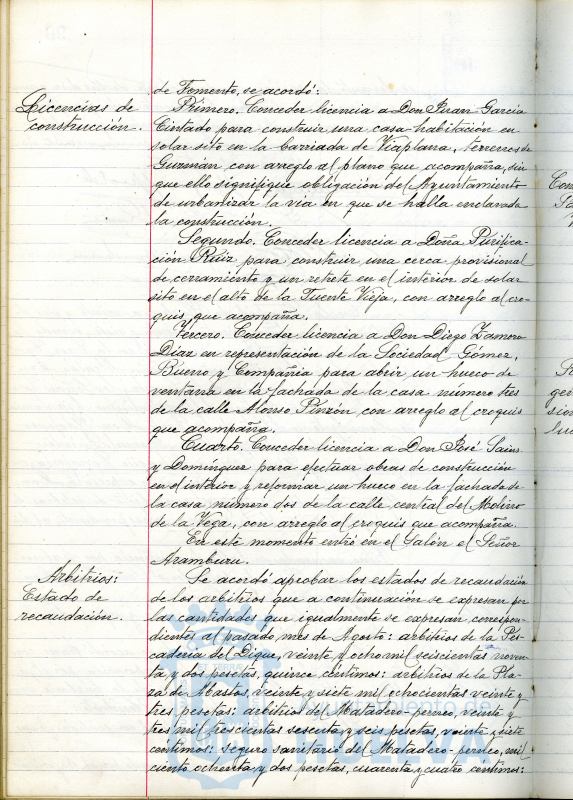 de Fomento, se acordó:
Licencias de
construcción.
Primero. Conceder licencia a Don Juan García
Cintado para construir una casa habitación en
solar sito en la barriada de Viaplana, terrenos de
Guzmán con arreglo al plano que acompaña, sin
que ello signifique obligación del Ayuntamiento
de urbanizar la vía en que se halla enclavada
la construcción.
Segundo. Conceder licencia a Doña Purifica-
ción Ruiz para construir una cerca provisional
de cerramiento y un retrete en el interior de solar
sito en el alto de la Fuente Vieja, con arreglo al cro-
quis, que acompaña.
Tercero. Conceder licencia a Don Diego Zamora
Díaz en representación de la Sociedad Gómez,
Bueno y Compañía para abrir un hueco de
ventana en la fachada de la casa número tres
de la calle Alonso Pinzón con arreglo al croquis
que acompaña.
Cuarto. Conceder licencia a Don José Sainz
y Domínguez para efectuar obras de construcción
en el interior y reformar un hueco en la fachada de
la casa número dos de la calle central del Molino
de la Vega, con arreglo al croquis que acompaña.
En este momento entró en el Salón el Señor
Aramburu.
Arbitrios:
Estado de
recaudación.
Se acordó aprobar los estados de recaudación
de los arbitrios que a continuación se expresan por
las cantidades que igualmente se expresan, correspon-
dientes al pasado mes de Agosto: arbitrios de la Pes-
cadería del Dique, veinte y ocho mil seiscientas noven-
ta y dos pesetas, quince céntimos: arbitrios de la Pla-
za de Abastos, veinte y siete mil ochocientas veinte y
tres pesetas: arbitrios del Matadero-perneo, veinte y
tres mil trescientas sesenta y seis pesetas, veinte y siete
céntimos: seguro sanitario del Matadero-perneo, mil
ciento ochenta y dos pesetas, cuarenta y cuatro céntimos:
Ayuntamiento de
HUELVA